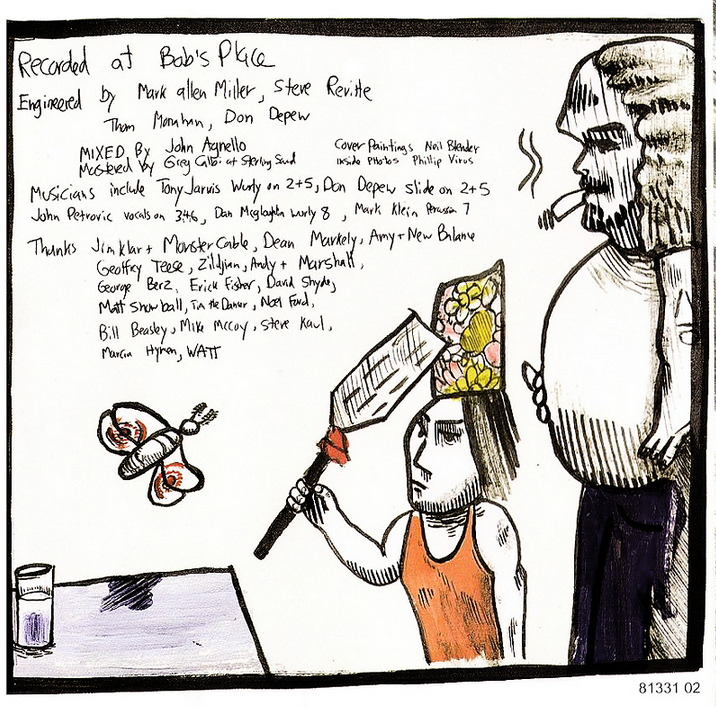 Recorded at Bob's Place
Engineered by Mark allen Miller, Steve Revitte
Thom Monahan, Don Depew
MIXED By John Agnello
Mastered by Greg Calbi at Sterling Sound
Cover Paintings Neil Blender
inside Photos Phillip Virus
Musicians include Tony Jarvis Wurly on 2+5, Don Depew slide on 2+5
John Petrovic vocals on 3+6, Dan Mcglaughln wurly 8, Mark Klein Percussion 7
Thanks Jim Klar + Monster Cable, Dean Markely, Amy + New Balance
Geoffry Teese, Zildjian, Andy + Marshall,
George Berz, Erick Fisher, David Shyde,
Matt Snowball, Tim the Dancer, Noel Ford,
Bill Beasley, Mike McCoy, Steve Kaul,
Marcia Hynen, WATT
81331 02